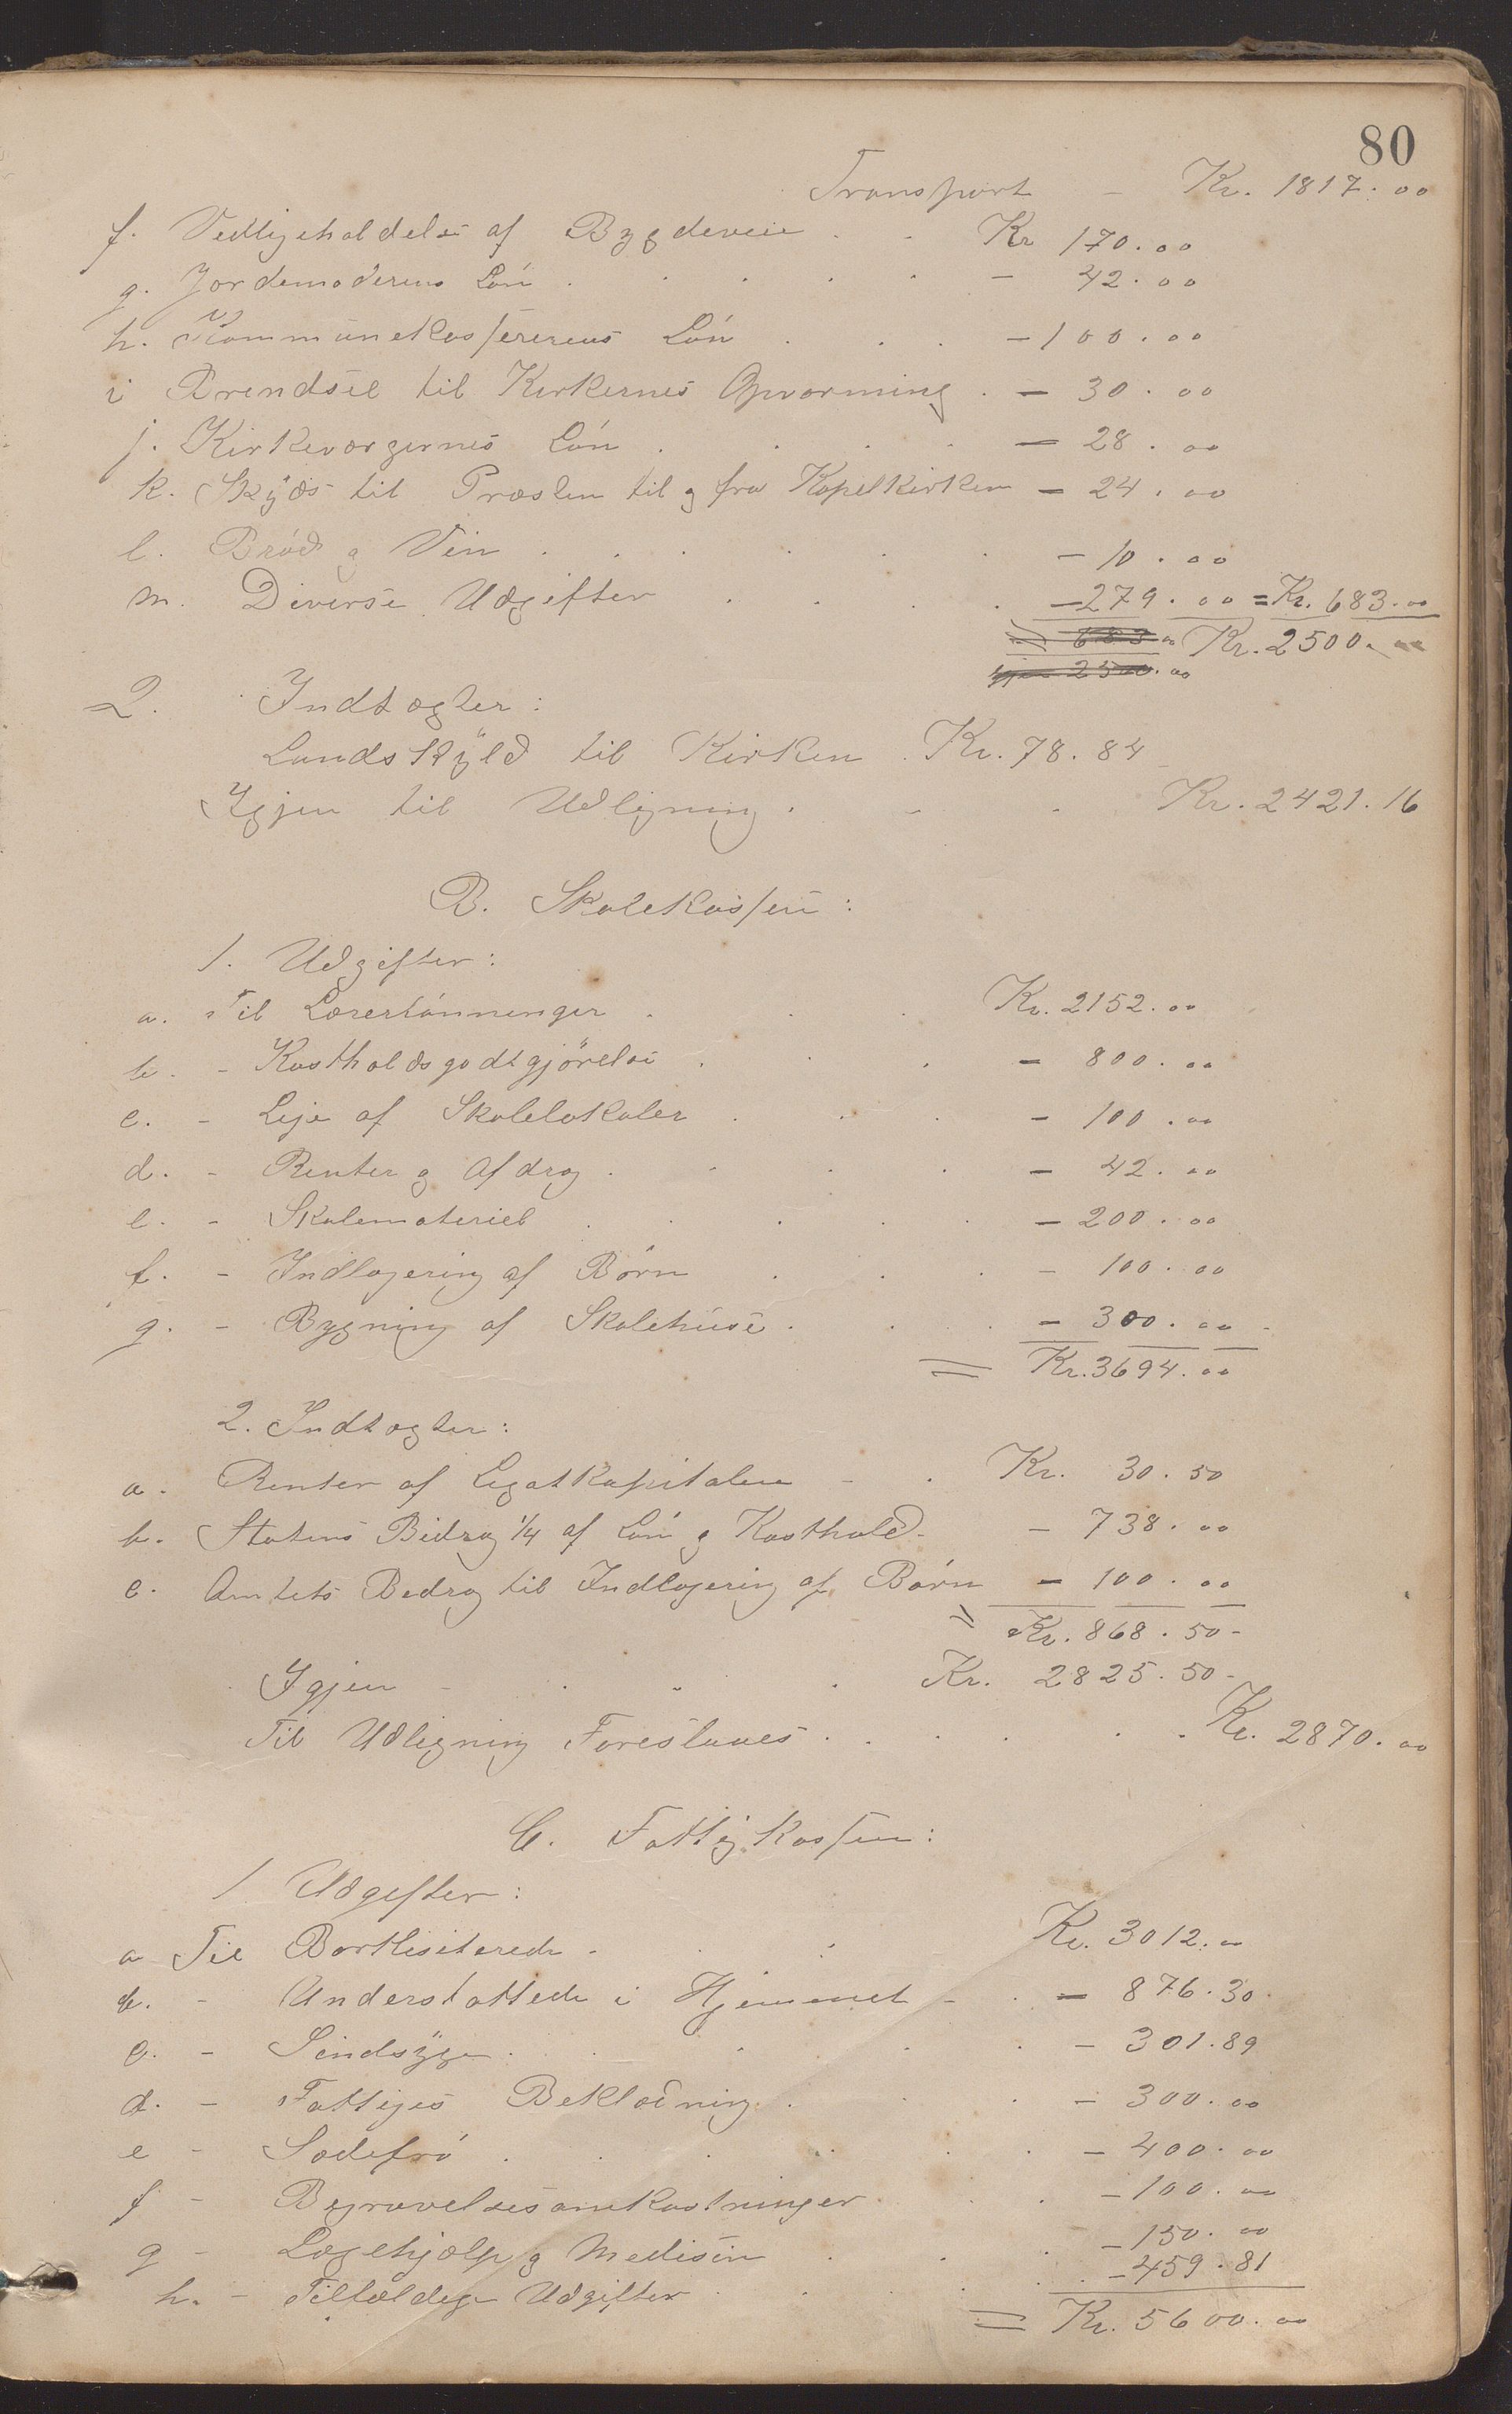 80
Transport - Kr. 1817.00
f. Vedligeholdelse af Bygdeveie . . Kr 170.00
g. Jordemoderens Løn . . . . . - 42.00
h. Kommunekasserereus Løn . . . - 100.00
i Brendsel til Kirkernes Opvarming . - 30.00
j. Kirkeværgernes Løn . . . . - 28.00
k. Skyds til Præsten til og fra Kapelkirken - 24.00
l. Brød og Vin . . . . . . - 10.00
m. Diverse Udgifter . . . . - 279.00 = Kr. 683.00
683.00 Kr. 2500.00
2500.00
2. Indtægter:
Landskyld til Kirken . Kr. 78.84
Igjen til Udligning . - . Kr. 2421.16
B. Skolekassen:
1. Udgifter:
a. Til Lærerlønninger . . . Kr. 2152.00
b. - Kostholdsgodtgjørelse . . . - 800.00
c. - Leje af Skolelokaler . . . - 100.00
d. - Renter og Afdrag . . . . - 42.00
e. - Skolemateriel . . . . . - 200.00
f. - Indlogering af Børn . . . - 100.00
g. - Bygning af Skolehuse . . . - 300.00
= Kr. 3694.00
2. Indtægter:
a. Renter af Legatkapitalen - . Kr. 30.50
b. Statens Bidrag 1/4 af Løn og Kosthold - - 738.00
c. Amtets Bedrag til Indlogering af Børn - 100.00
= Kr. 868.50-
Igjen - . - . Kr. 2825.50-
Til Udligning Foreslaaes . . . . . . Kr. 2870.00
C. Fattigkassen:
1 Udgifter:
a Til Bortlisiterede - . . Kr. 3012.00
b. - Understøttede i Hjemmet - . - 876.30
c. - Sindsyge . . . . . - 301.89
d. - Fattiges Beklædning . . . - 300.00
e - Sædefrø . . . . . . - 400.00
f - Begravelsesomkostninger . . . - 100.00
g - Lægehjælp og Medisin . . . - 150.00
h. - Tilfældige Udgifter . . . . . - 459.81
= Kr. 5600.00